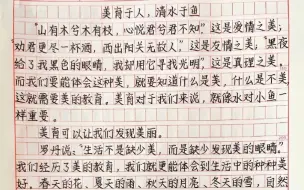 美育于人，清水于鱼
"山有木兮木有枝，心悦君兮君不知"这是爱情之美；
劝君更尽一杯酒，西出阳关无故人"这是友情之美；"黑夜
给了我黑色的眼睛，我却用它寻找光明"。这是真理之美。
而我们要能体会这种美，就要知道什么是美，什么是不美
这就需要美的教育。美育对于我们来说，就像水对小鱼一
样重要。
美育可以让我们发现美丽。
罗丹说："生活不是缺少美，而是缺少发现美的眼睛。"
我们经历了美的教育，我们就更能体会到生活中的种种美
好。春天的花、夏天的雨、秋天的月亮、冬天的雪，自然